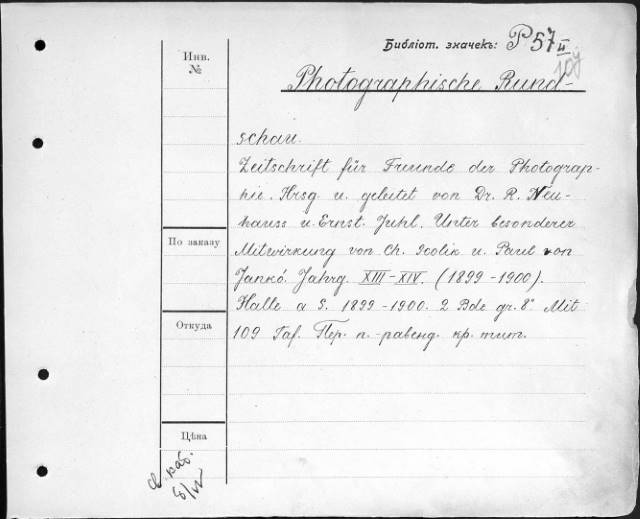 Библіот. значекъ: P 57 II
10j
Инв.
№
Photographische Rund-
schau.
Zeitschrift für Freunde der Photograp-
hie. Hrsg. u. geleitet von Dr. R. Neu-
hauss u. Ernst Juhl. Unter besonderer
Mitwirkung von Ch. Scolik u. Paul von
Jankó. Jahrg. XIII-XIV. (1899-1900).
Halle a S. 1899-1900. 2 Bde gr. 8° Mit
109 Taf. Пер. п.-
кр. тит.
По заказу
Откуда
Цѣна
каб.